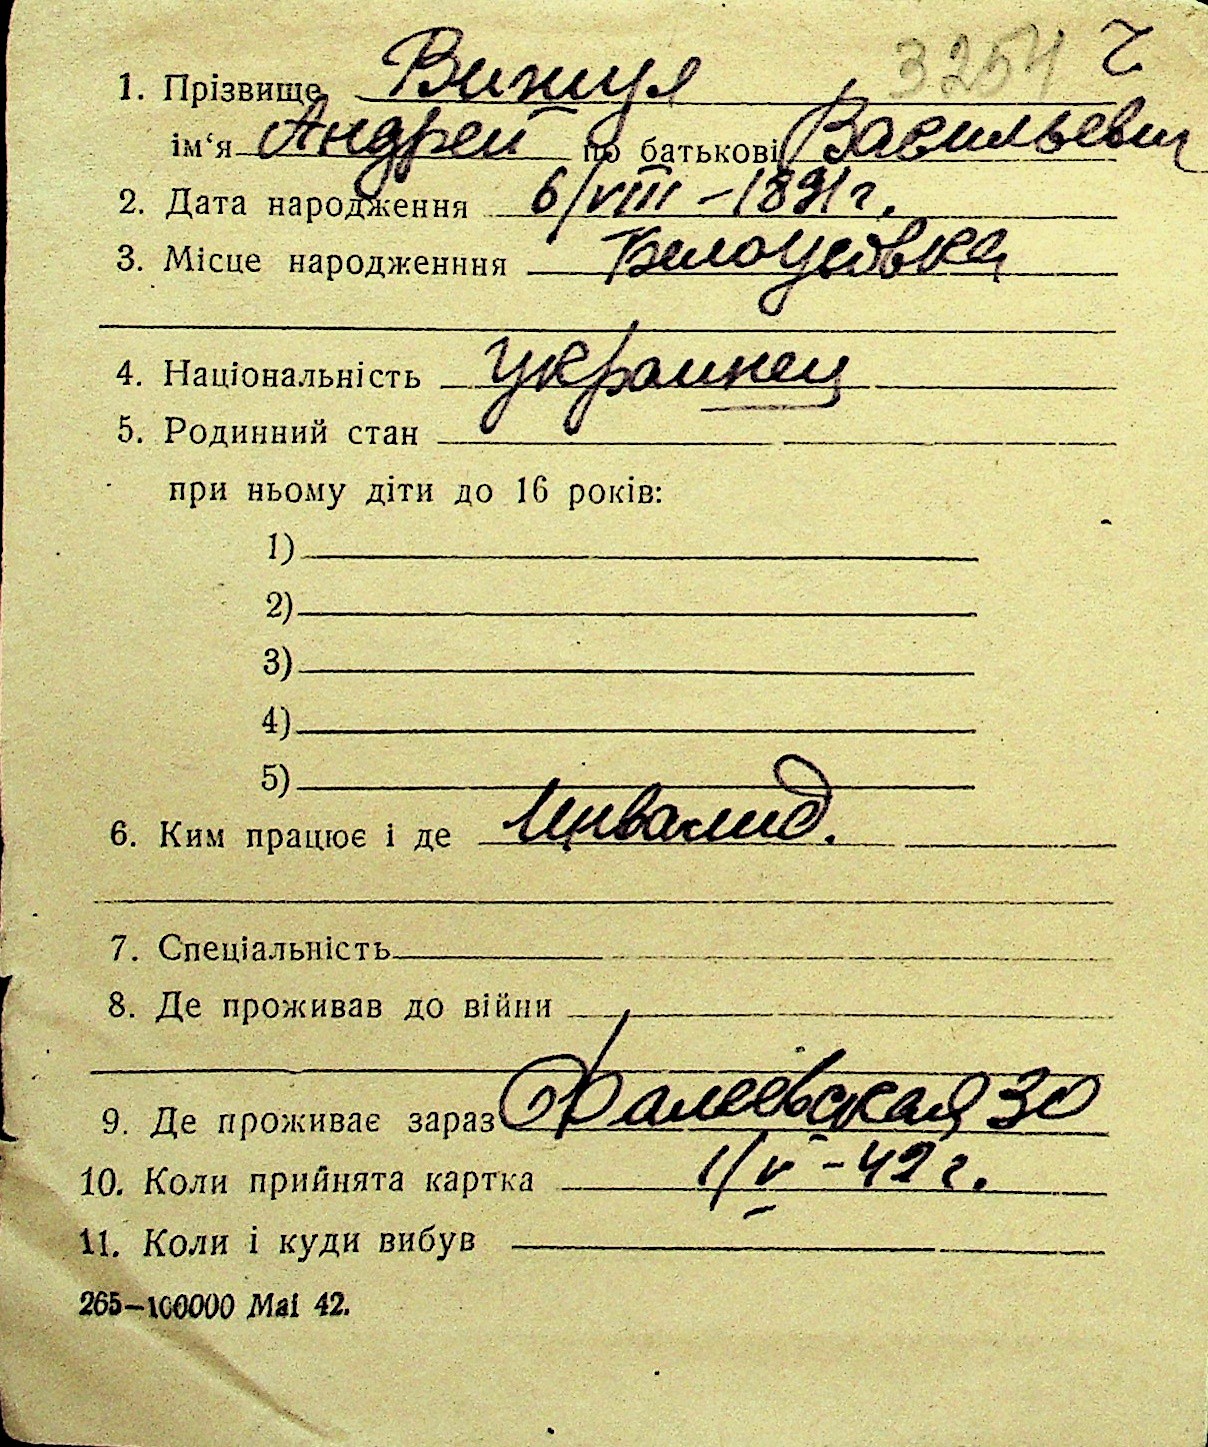 3254 ч
1. Прізвище Вижул
ім‘я Андрей по батькові Васильевич
2. Дата народження 6/VIII – 1891 г.
3. Місце народженння Белоусовка
4. Національність украинец
5. Родинний стан
при ньому діти до 16 років:
1)
2)
3)
4)
5)
6. Ким працює і де Инвалид.
7. Спеціальність
8. Де проживав до війни
9. Де проживає зараз Фалеевская 30
10. Коли прийнята картка 1/V – 42 г.
11. Коли і куди вибув
265–100000 Mai 42.